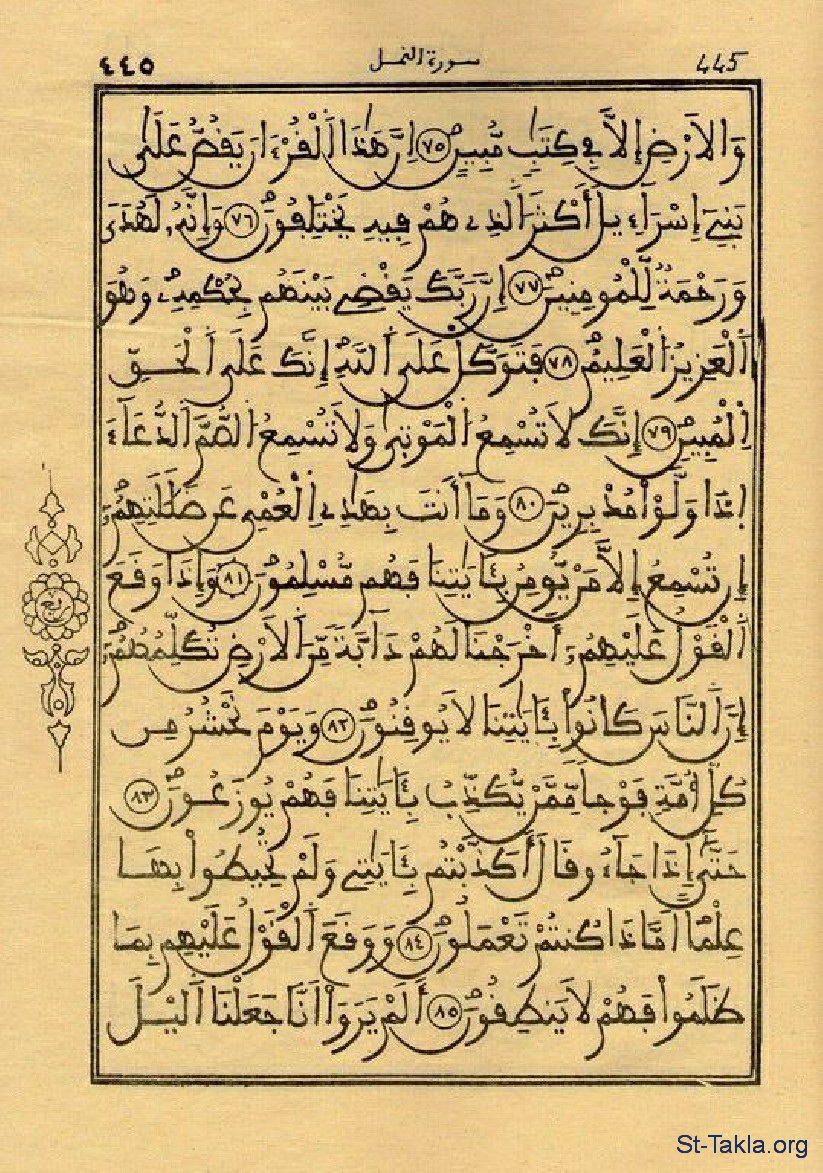 ٤٤٥ سورة النمل 445
وَالَارْضِ إِلَّا فِي كِتَٰبٍ مُّبِينٍ ٧٥ اِنَّ هَٰذَا اَ۬لْقُرْءَانَ يَقُصُّ عَلَىٰ
بَنِےٓ إِسْرَآءِيلَ أَكْثَرَ اَ۬لذِے هُمْ فِيهِ يَخْتَلِفُونَ ٧٦ وَإِنَّهُۥ لَهُدىَ
وَرَحْمَةٌ لِّلْمُومِنِينَ ٧٧ إِنَّ رَبَّكَ يَقْضِے بَيْنَهُم بِحُكْمِهِۦ وَهُوَ
اَ۬لْعَزِيزُ اُ۬لْعَلِيمُ ٧٨ فَتَوَكَّلْ عَلَى اَ۬للَّهِ إِنَّكَ عَلَى اَ۬لْحَقِّ
اِ۬لْمُبِينِ ٧٩ إِنَّكَ لَا تُسْمِعُ اُ۬لْمَوْتٖىٰ وَلَا تُسْمِعُ اُ۬لصُّمَّ اَ۬لدُّعَآءَ
اِذَا وَلَّوْاْ مُدْبِرِينَ ٨٠ وَمَآ أَنتَ بِهَٰدِے اِ۬لْعُمْيِ عَن ضَلَٰلَتِهِمُۥٓ
إِن تُسْمِعُ إِلَّا مَنْ يُّومِنُ بِـَٔايَٰتِنَا فَهُم مُّسْلِمُونَ ٨١ وَإِذَا وَقَعَ
اَ۬لْقَوْلُ عَلَيْهِمُۥٓ أَخْرَجْنَا لَهُمْ دَآبَّةً مِّنَ اَ۬لَارْضِ تُكَلِّمُهُمُۥٓ
إِنَّ اَ۬لنَّاسَ كَانُواْ بِـَٔايَٰتِنَا لَا يُوقِنُونَ ٨٢ وَيَوْمَ نَحْشُرُ مِن
كُلِّ أُمَّةٍ فَوْجاً مِّمَّنْ يُّكَذِّبُ بِـَٔايَٰتِنَا فَهُمْ يُوزَعُونَ ٨٣
حَتَّىٰٓ إِذَا جَآءُو قَالَ أَكَذَّبْتُم بِـَٔايَٰتِے وَلَمْ تُحِيطُواْ بِهَا
عِلْماً اَمَّاذَا كُنتُمْ تَعْمَلُونَ ٨٤ وَوَقَعَ اَ۬لْقَوْلُ عَلَيْهِم بِمَا
ظَلَمُواْ فَهُمْ لَا يَنطِقُونَ ٨٥ أَلَمْ يَرَوَاْ اَنَّا جَعَلْنَا اَ۬ليْلَ
ربع
St-Takla.org